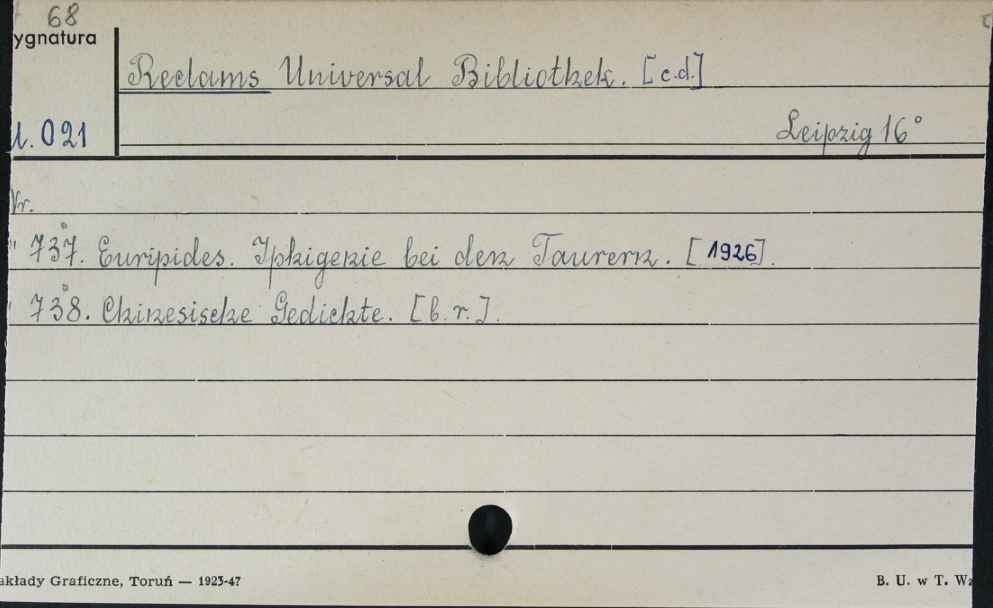 68
ygnatura
Reclams Universal Bibliothek. [c.d.]
021
Leipzig 16°
Nr.
" 737. Euripides. Iphigenie bei den Taurern. [1926].
" 738. Chinesische Gedichte. [b.r.].
akłady Graficzne, Toruń — 1923-47
B. U. w T. Wz